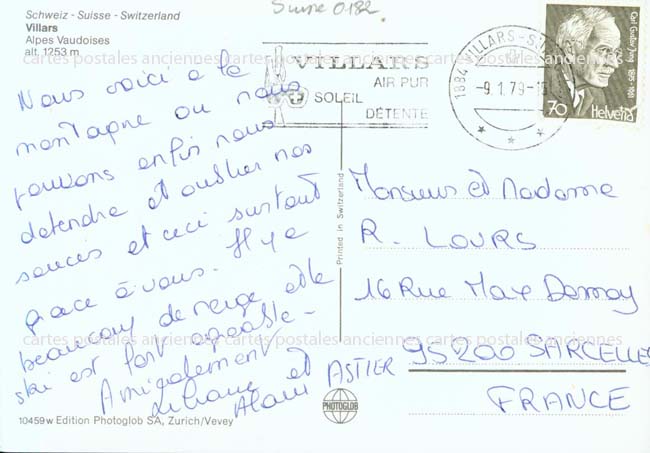 Suisse 0182
Schweiz - Suisse - Switzerland
Villars
Alpes Vaudoises
alt. 1253 m
cartes postales anciennes cartes postales anciennes cartes postales anciennes
VILLARS
AIR PUR
SOLEIL
DÉTENTE
1884 VILLARS-S
-9.1.79-1
Carl Gustav Jung 1875-1961
70 Helvetia
Nous voici a la
montagne ou nous
pouvons enfin nous
detendre et oublier nos
soucis et ceci surtout
grace à vous. Il y a
beaucoup de neige et le
ski est fort agreable -
Amicalement
Liliane et
Alain ASTIER
Printed in Switzerland
Monsieur et Madame
R. LOURS
16 Rue Max Dormoy
95200 SARCELLES
FRANCE
cartes postales anciennes cartes postales anciennes cartes postales anciennes
10459w Edition Photoglob SA, Zurich/Vevey
PHOTOGLOB